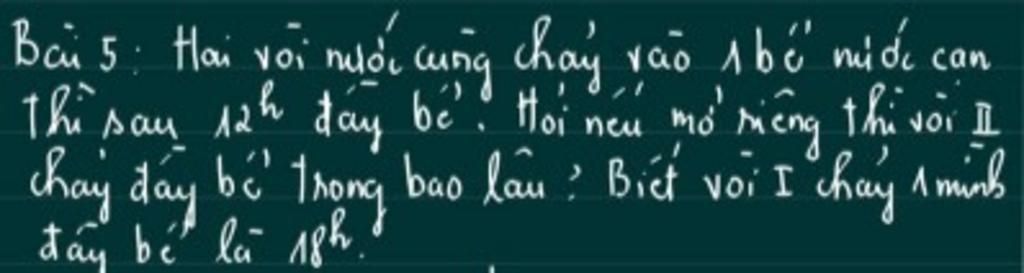 Bài 5: Hai vòi nước cùng chảy vào 1 bể nước cạn
thì sau 12h đầy bể. Hỏi nếu mở riêng thì vòi II
chảy đầy bể trong bao lâu? Biết vòi I chảy 1 mình
đầy bể là 18h.